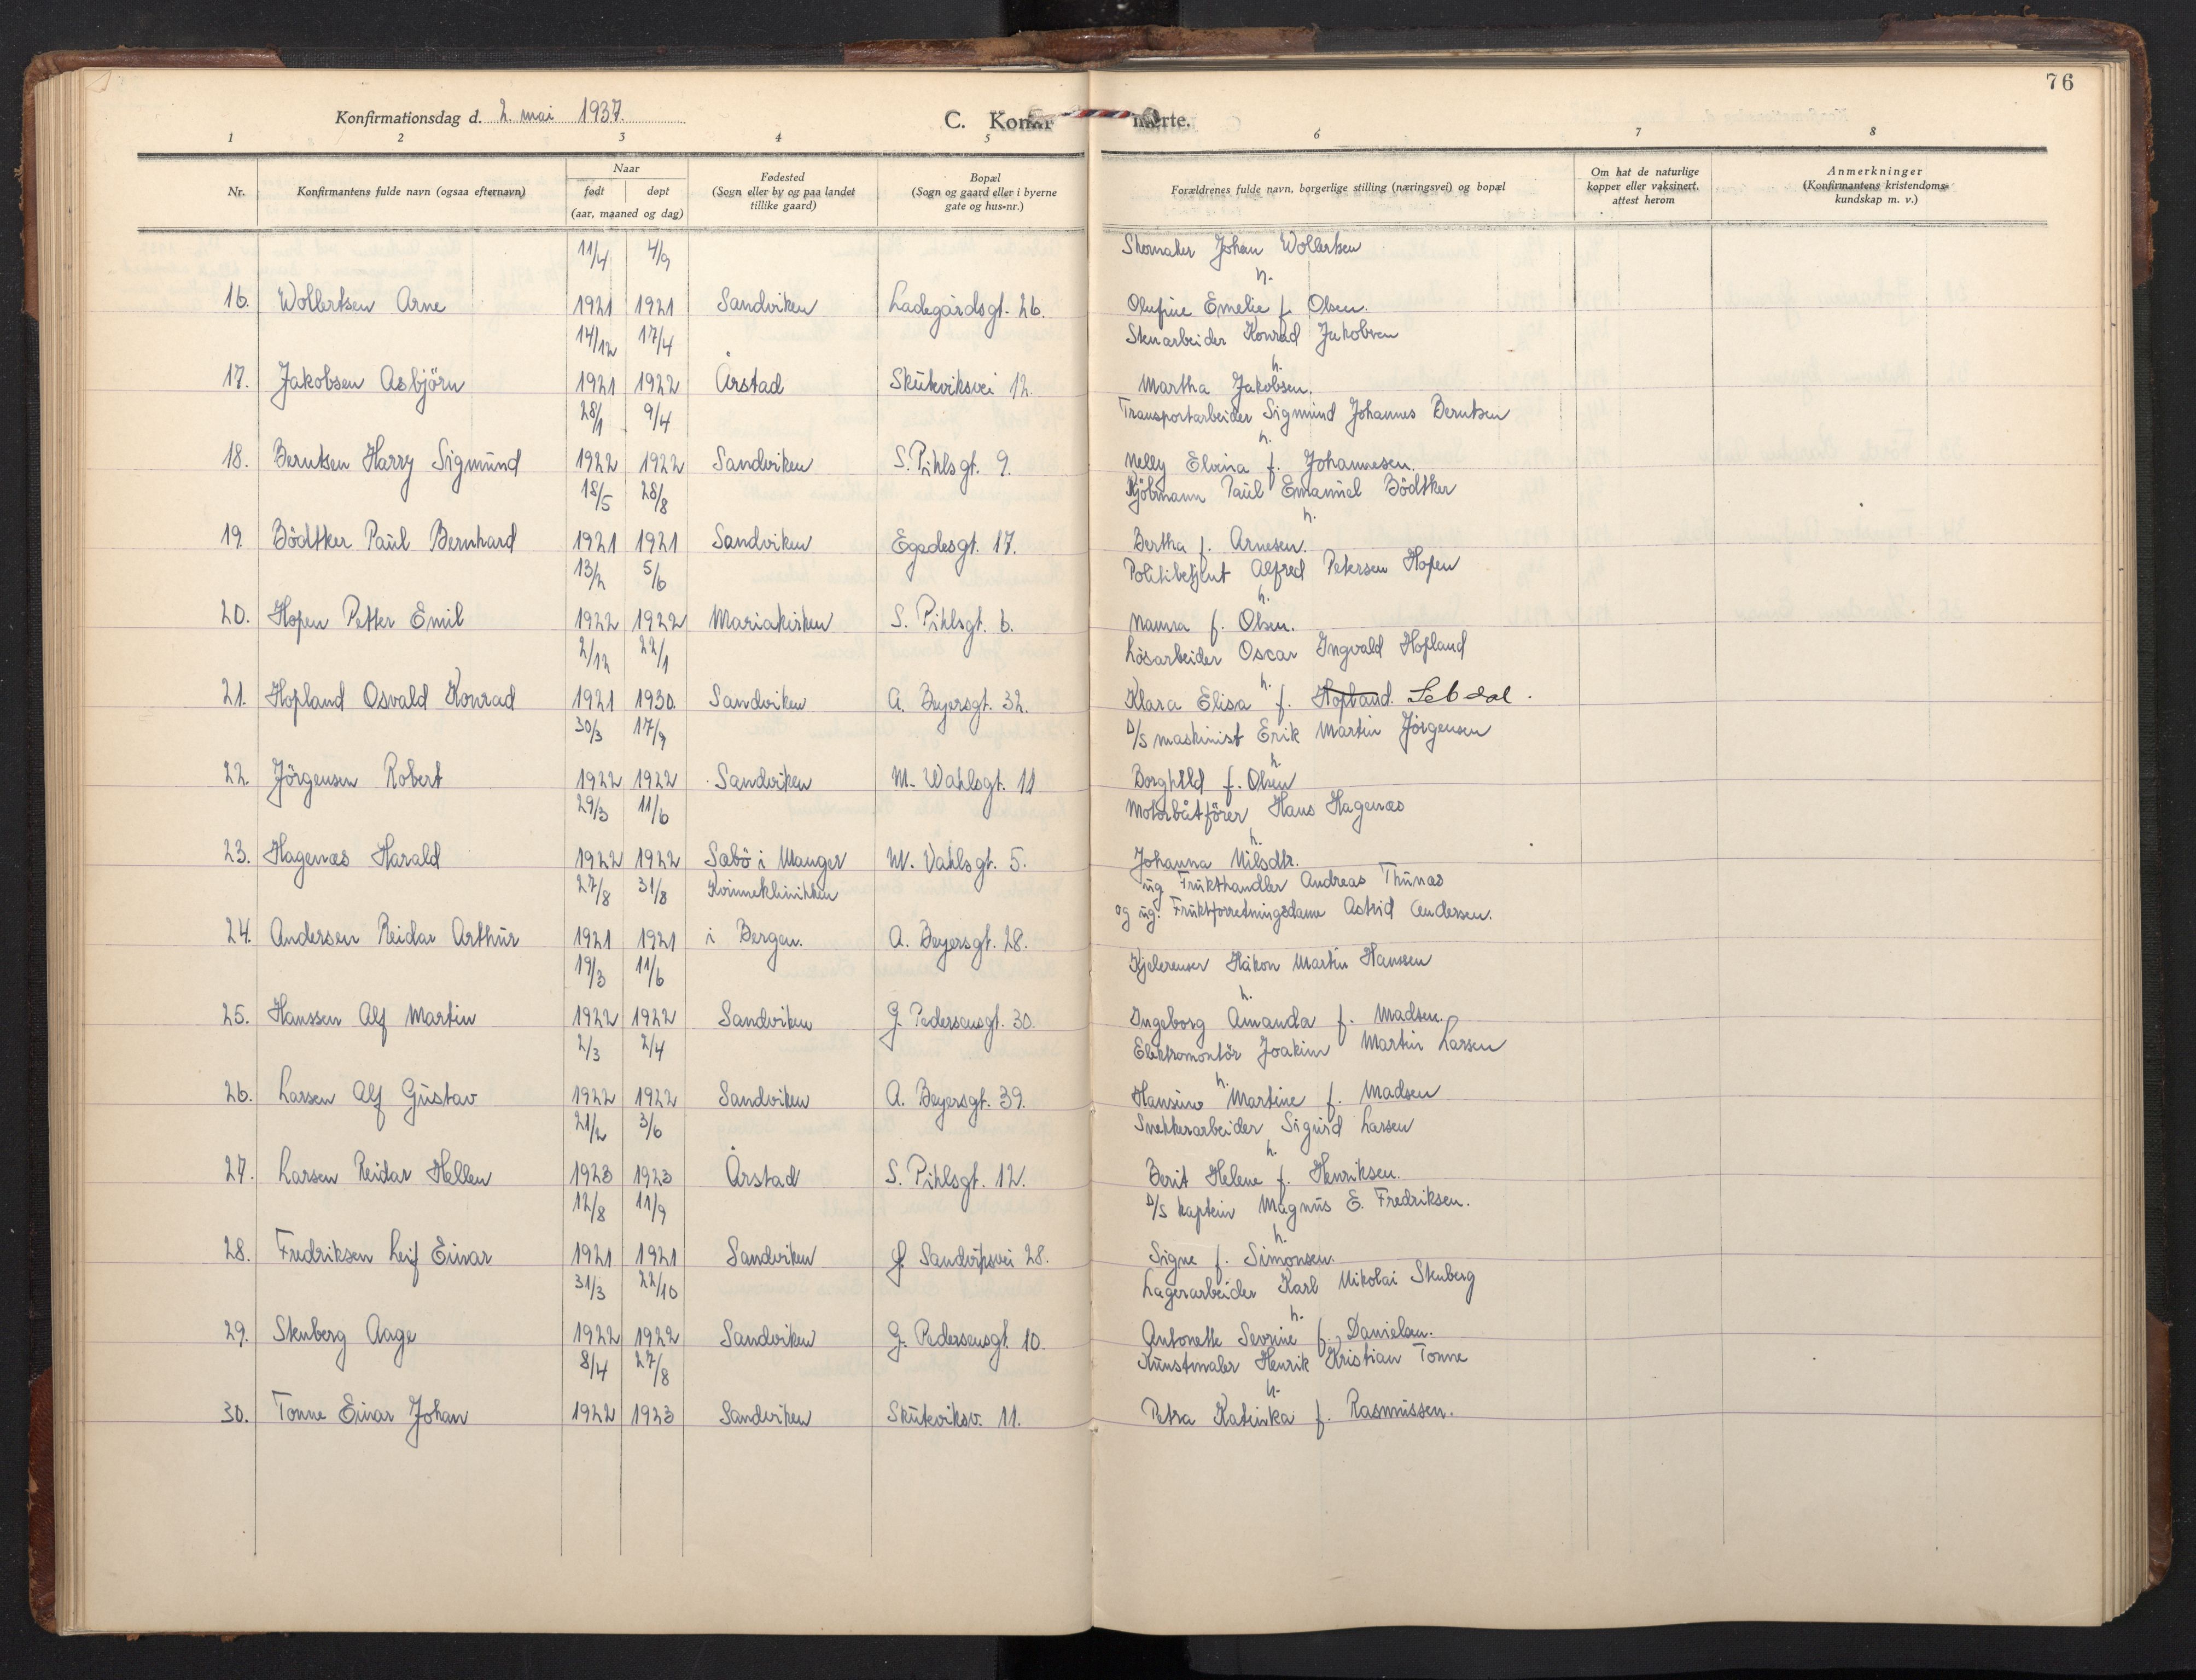 76
Konfirmationsdag d. 2. mai 1937.
C. Konfir
merte.
1 2 3 4 5 6 7 8
Nr.
Konfirmantens fulde navn (ogsaa efternavn)
Naar
født
døpt
(aar, maaned og dag)
Fødested
(Sogn eller by og paa landet
tillike gaard)
Bopæl
(Sogn og gaard eller i byerne
gate og hus-nr.)
Forældrenes fulde navn, borgerlige stilling (næringsvei) og bopæl
Om hat de naturlige
kopper eller vaksinert.
attest herom
Anmerkninger
(Konfirmantens kristendoms-
kundskap m. v.)
11/4 4/9 Skomaker Johan Wollertsen
h.
16. Wollertsen Arne 1921 1921 Sandviken Ladegårdsgt. 26. Olufine Emelie f. Olsen.
14/12 17/4 Stenarbeider Konrad Jakobsen
h.
17. Jakobsen Asbjörn 1921 1922 Årstad Skuteviksvei 12. Martha Jakobsen.
28/1 9/4 Transportarbeider Sigmund Johannes Berntsen
h.
18. Berntsen Harry Sigmund 1922 1922 Sandviken S. Pihlsgt. 9. Nelly Elvina f. Johannesen.
18/5 28/8 Kjöbmann Paul Emanuel Bödtker
h.
19. Bödtker Paul Bernhard 1921 1921 Sandviken Egedesgt. 17. Bertha f. Arnesen.
13/2 5/6 Politibetjent Alfred Petersen Hopen
h.
20. Hopen Petter Emil 1922 1922 Mariakirken S. Pihlsgt. 6. Nanna f. Olsen.
2/12 22/1 Lösarbeider Oscar Ingvald Hopland
h.
21. Hopland Osvald Konrad 1921 1930. Sandviken A. Beyersgt. 32. Klara Elisa f. Hopland. Sebdal.
30/3 17/9 D/S maskinist Erik Martin Jörgensen
h.
22. Jörgensen Robert 1922 1922 Sandviken M. Wahlsgt. 11 Borghild f. Olsen
29/3 11/6 Motorbåtförer Hans Hagenæs
h.
23. Hagenæs Harald 1922 1922 Sæbö i Manger M. Vahlsgt. 5. Johanna Nilsdtr.
27/8 31/8 Kvinneklinikken ug Frukthandler Andreas Thunæs
og ug. Fruktforretningsdame Astrid Andersen.
24. Andersen Reidar Arthur 1921 1921 i Bergen. A. Beyersgt. 28.
19/3 11/6 Kjelerenser Håkon Martin Hanssen
h.
25. Hanssen Alf Martin 1922 1922 Sandviken G. Pedersensgt. 30. Ingeborg Amanda f. Madsen.
2/3 2/4 Elektromontör Joakim Martin Larsen
h.
26. Larsen Alf Gustav 1922 1922 Sandviken A. Beyersgt. 39. Hansine Martine f. Madsen
21/2 3/6 Snekkerarbeider Sigurd Larsen
h.
27. Larsen Reidar Hellen 1923 1923 Årstad S. Pihlsgt. 12. Berit Helene f. Henriksen.
12/8 11/9 D/S kaptein Magnus E. Fredriksen.
h.
28. Fredriksen Leif Einar 1921 1921 Sandviken Sandviksvei 28. Signe f. Simonsen.
31/3 22/10 Lagerarbeider Karl Nikolai Stenberg
h.
29. Stenberg Aage 1922 1922 Sandviken G. Pedersensgt. 10. Antonette Sevrine f. Danielsen.
8/4 27/8 Kunstmaler Henrik Kristian Tonne
h.
30. Tonne Einar Johan 1922 1923 Sandviken Skuteviksv. 11. Petra Katinka f. Rasmussen.